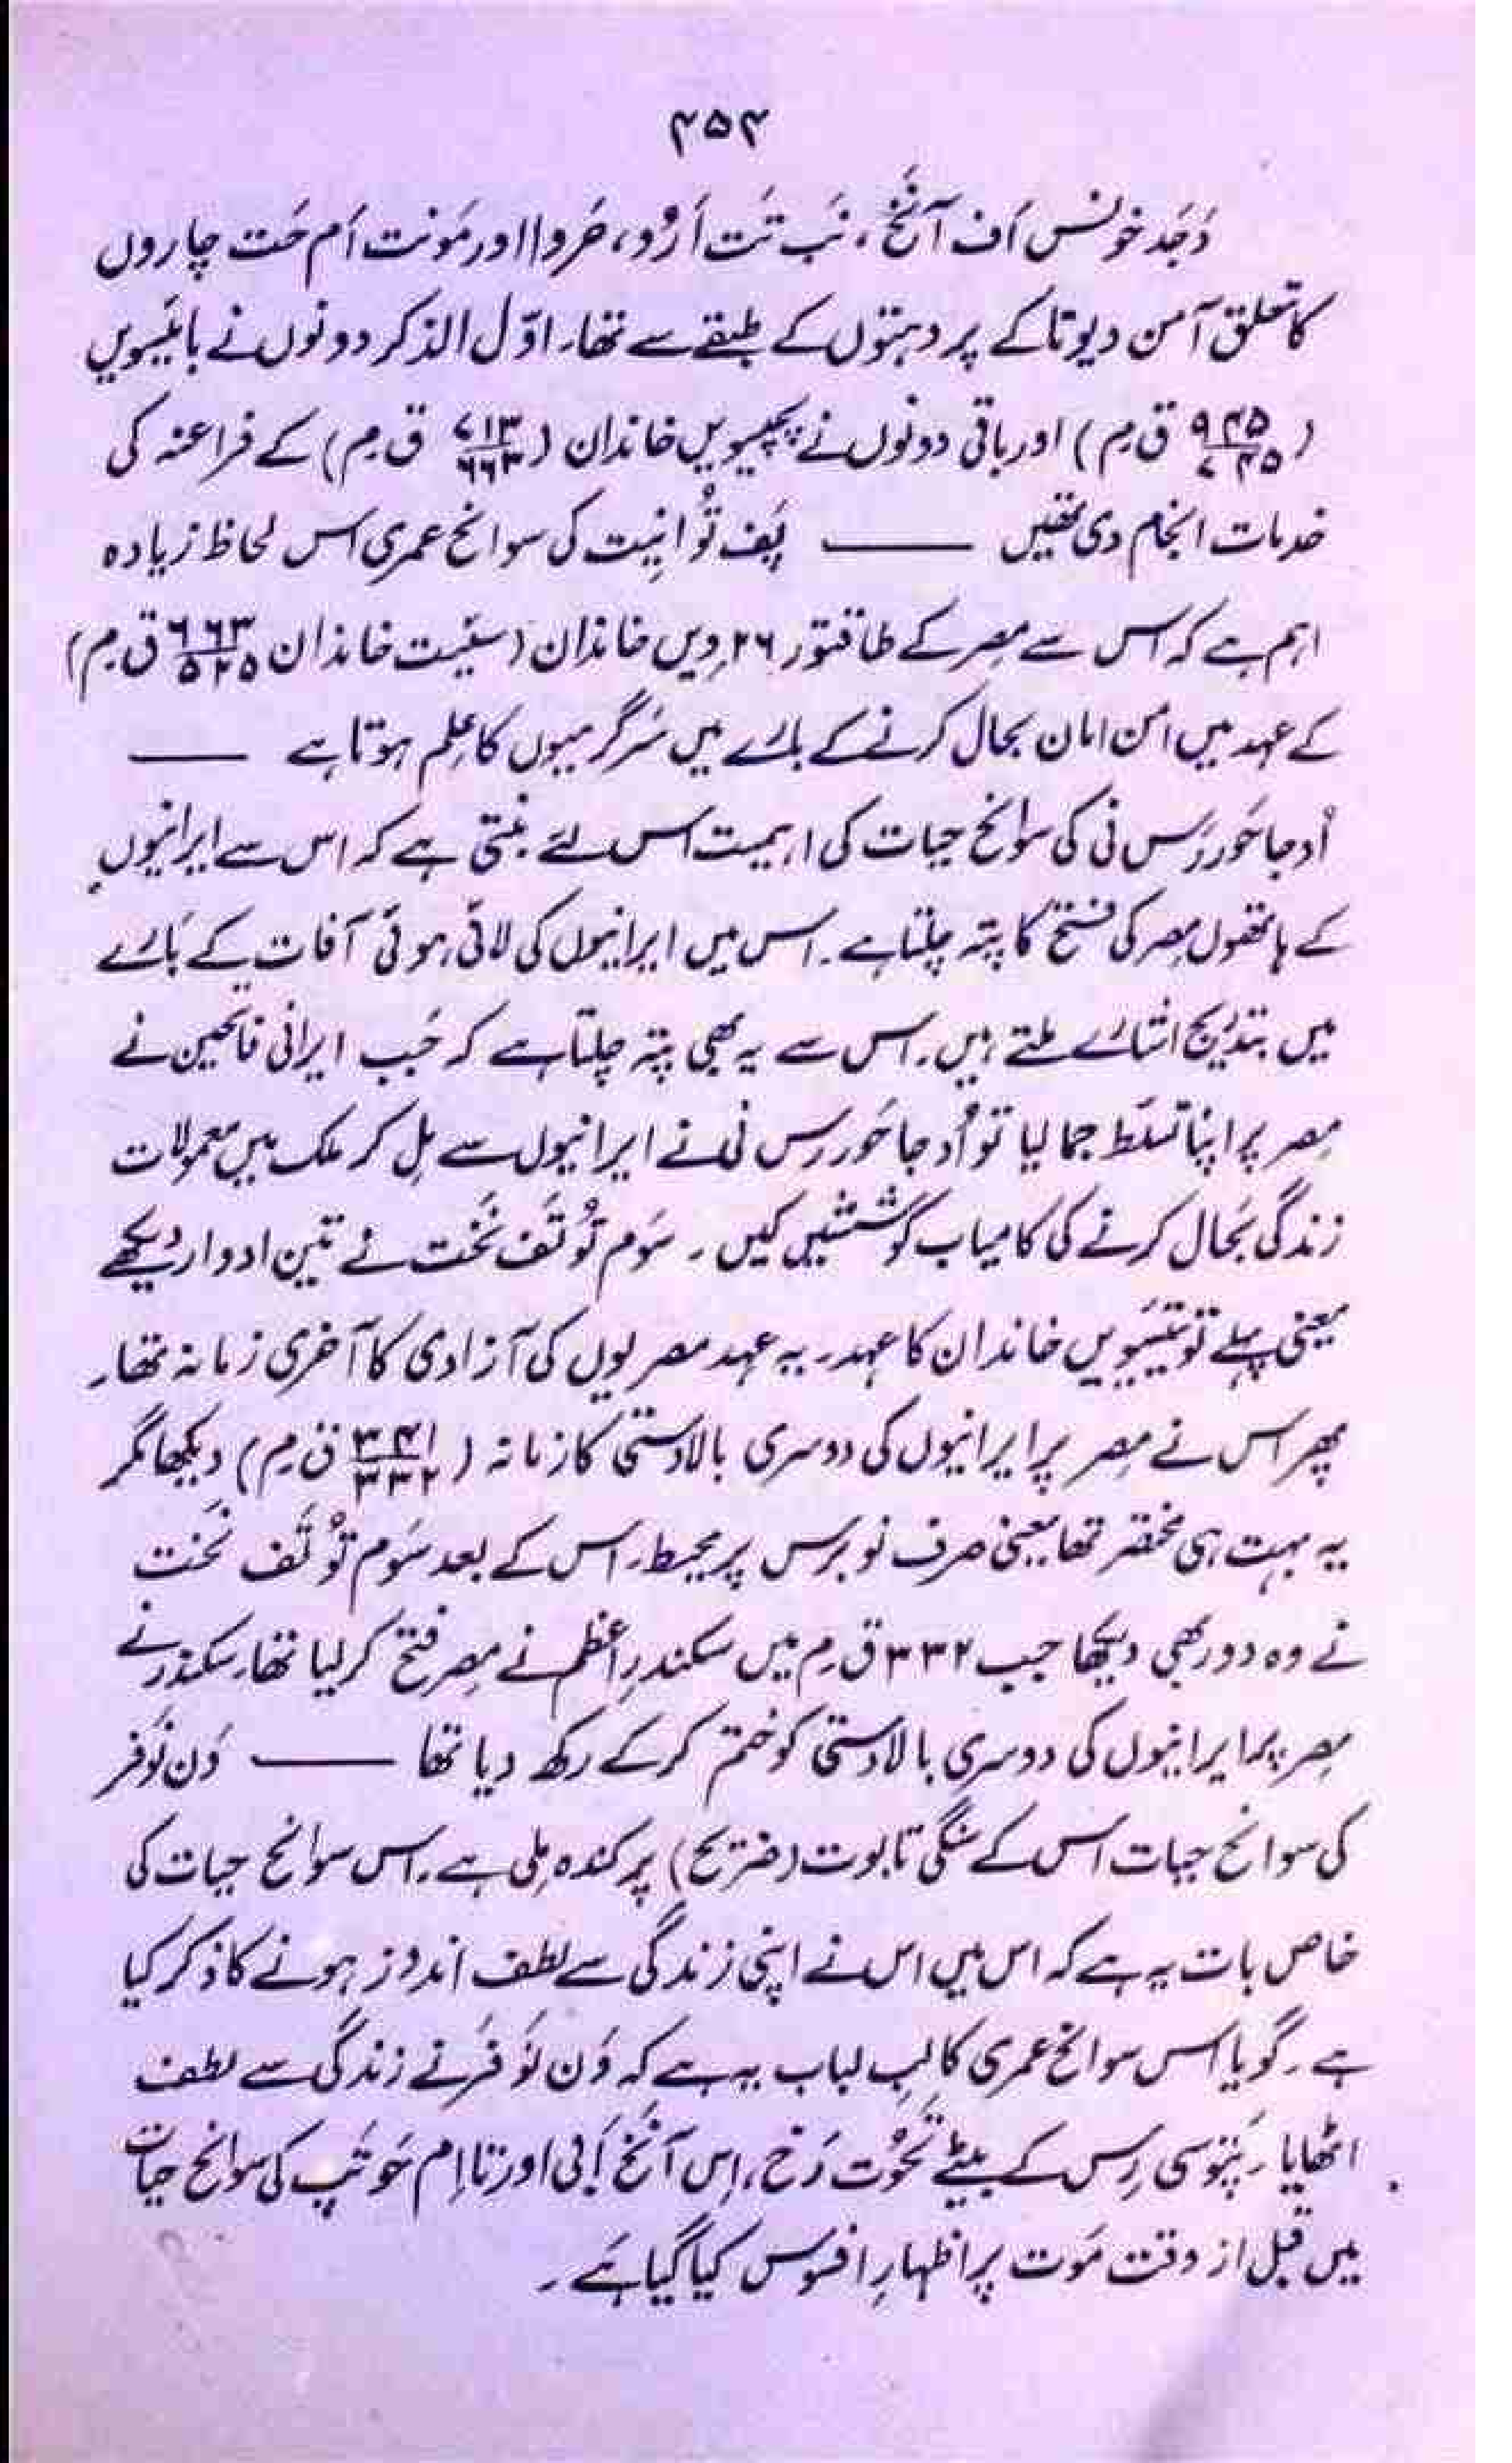 ۴۵۴
دَجَد خونس اَف آنخ، نَب تَت اَرُو، حَروا اور مَونت اَم حَت چاروں
کا تعلق آمن دیوتا کے پروہتوں کے طبقے سے تھا۔ اوّل الذکر دونوں نے بائیسویں
(۹۴۵/۷۴۵ ق۔م) اور باقی دونوں نے پچیسویں خاندان (۷۱۳/۶۶۳ ق۔م) کے فراعنہ کی
خدمات انجام دی تھیں —— پَف تُو اَنِیت کی سوانح عمری اس لحاظ زیادہ
اہم ہے کہ اس سے مِصر کے طاقتور ۲۶ ویں خاندان (سَیَیت خاندان ۶۶۳/۵۲۵ ق۔م)
کے عہد میں امن امان بحال کرنے کے بارے میں سَرگرمیوں کا عِلم ہوتا ہے ——
اُدجا حَورَرَس نی کی سوانح حیات کی اہمیت اس لئے بنتی ہے کہ اس سے ایرانیوں
کے ہاتھوں مِصر کی فتح کا پتہ چلتا ہے۔ اس میں ایرانیوں کی لائی ہوئی آفات کے بارے
میں بتدریج اشارے ملتے ہیں۔ اس سے یہ بھی پتہ چلتا ہے کہ جَب ایرانی فاتحین نے
مِصر پر اپنا تسلّط جما لیا تو اُدجا حَورَرس نی نے ایرانیوں سے مِل کر ملک میں معمولات
زندگی بَحال کرنے کی کامیاب کوششیں کیں۔ سَوم تُو تَف نَخت نے تین ادوار دیکھے
یعنی پہلے تو تیسَویں خاندان کا عہد۔ یہ عہد مصریوں کی آزادی کا آخری زمانہ تھا۔
پھر اس نے مِصر پر ایرانیوں کی دوسری بالادستی کا زمانہ (۳۴۱/۳۳۲ ق۔م) دیکھا مگر
یہ بہت ہی مختصر تھا یعنی صرف نو برس پر محیط۔ اس کے بعد سَوم تُو تَف نَخت
نے وہ دور بھی دیکھا جب ۳۳۲ ق۔م میں سکندرِ اعظم نے مِصر فتح کر لیا تھا۔ سکندر نے
مِصر پر ایرانیوں کی دوسری بالادستی کو ختم کر کے رکھ دیا تھا —— وَن نَوفر
کی سوانح حیات اس کے سنگی تابوت (ضریح) پر کندہ مِلی ہے۔ اس سوانح حیات کی
خاص بات یہ ہے کہ اس میں اس نے اپنی زندگی سے لطف اندوز ہونے کا ذکر کیا
ہے۔ گویا اس سوانح عمری کا لبِ لباب یہ ہے کہ وَن نَوفَر نے زندگی سے لطف
اٹھایا۔ پَتوسی رِس کے بیٹے تَحُوت رَخ، اِس آنخ اَبی اور تا اِم حَوتَپ کی سوانح حیات
میں قبل از وقت مَوت پر اظہارِ افسوس کیا گیا ہَے۔